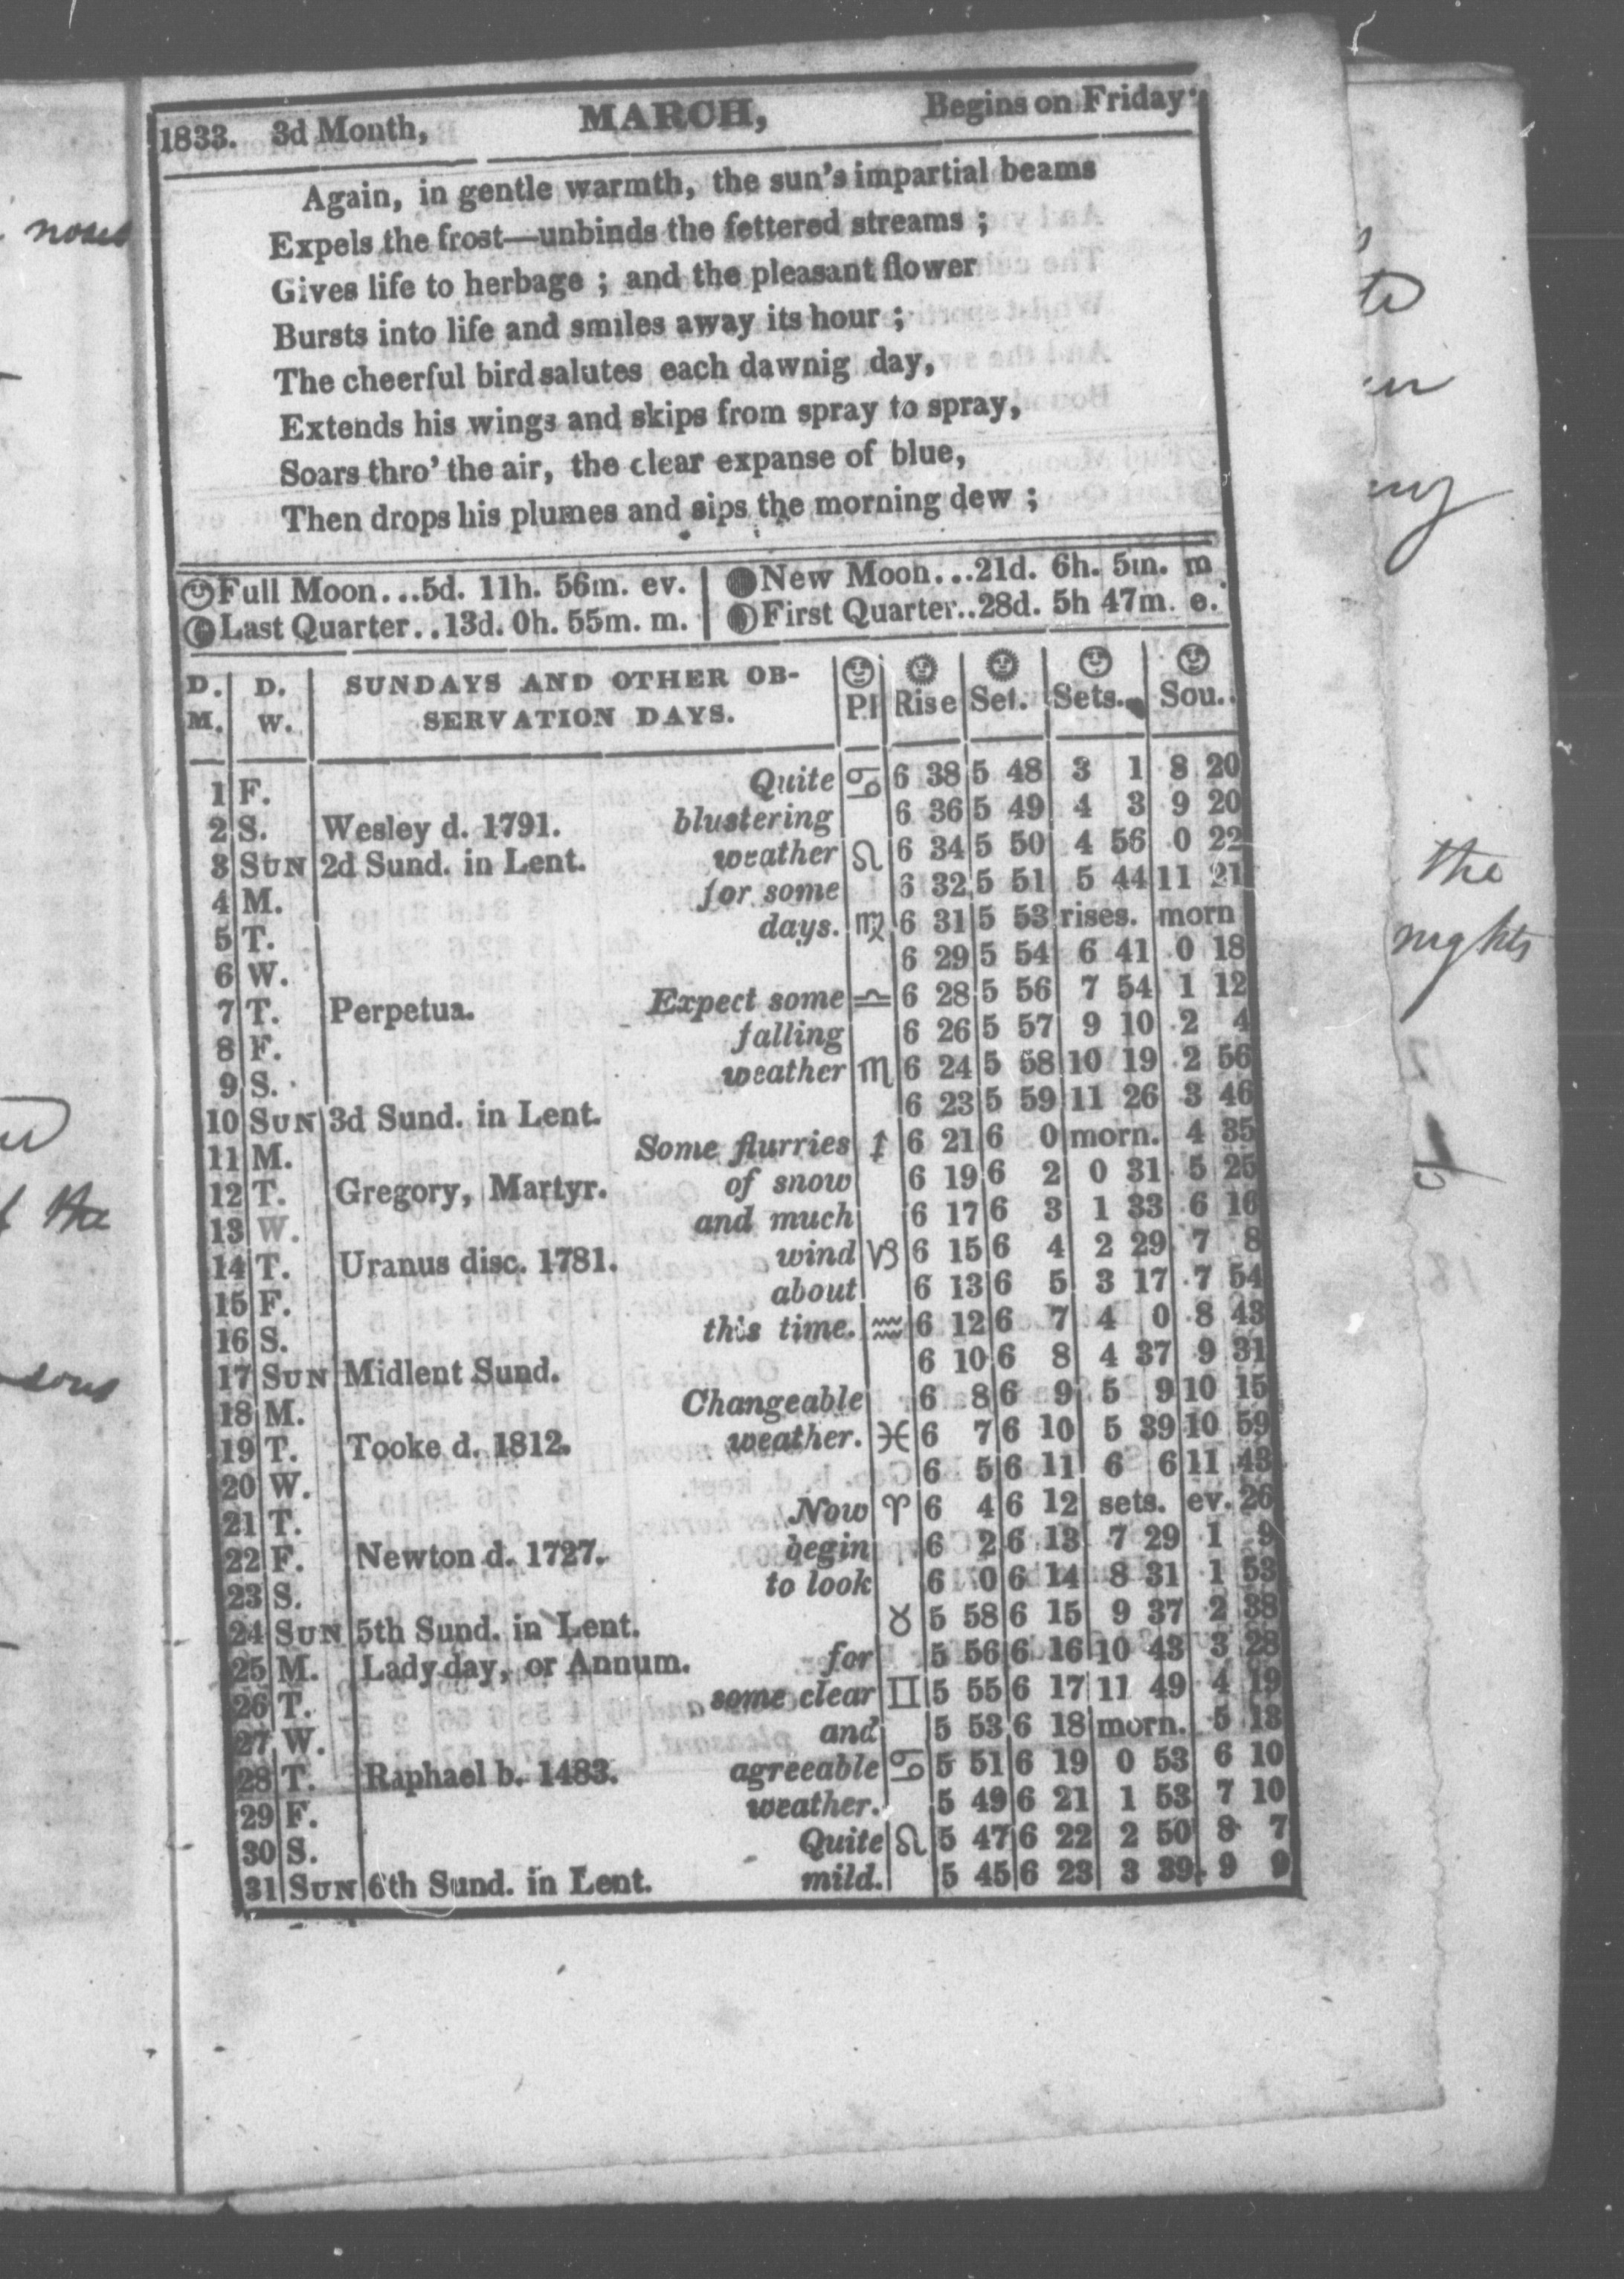 1833. 3d Month, MARCH, Begins on Friday
Again, in gentle warmth, the sun's impartial beams
Expels the frost—unbinds the fettered streams ;
Gives life to herbage ; and the pleasant flower
Bursts into life and smiles away its hour ;
The cheerful bird salutes each dawnig day,
Extends his wings and skips from spray to spray,
Soars thro' the air, the clear expanse of blue,
Then drops his plumes and sips the morning dew ;
Full Moon...5d. 11h. 56m. ev. New Moon...21d. 6h. 5m. m
Last Quarter..13d. 0h. 55m. m. First Quarter..28d. 5h 47m. e.
D. D. SUNDAYS AND OTHER OB- Rise Set. Sets. Sou.
M. W. SERVATION DAYS. Pl
1 F. Quite ♋ 6 38 5 48 3 1 8 20
2 S. Wesley d. 1791. blustering 6 36 5 49 4 3 9 20
3 SUN 2d Sund. in Lent. weather ♌ 6 34 5 50 4 56 0 22
4 M. for some 6 32 5 51 5 44 11 21
5 T. days. ♍ 6 31 5 53 rises. morn
6 W. 6 29 5 54 6 41 0 18
7 T. Perpetua. Expect some ♎ 6 28 5 56 7 54 1 12
8 F. falling 6 26 5 57 9 10 2 4
9 S. weather ♏ 6 24 5 58 10 19 2 56
10 SUN 3d Sund. in Lent. 6 23 5 59 11 26 3 46
11 M. Some flurries ♐ 6 21 6 0 morn. 4 35
12 T. Gregory, Martyr. of snow 6 19 6 2 0 31 5 25
13 W. and much 6 17 6 3 1 33 6 16
14 T. Uranus disc. 1781. wind ♑ 6 15 6 4 2 29 7 8
15 F. about 6 13 6 5 3 17 7 54
16 S. this time. ♒ 6 12 6 7 4 0 8 43
17 SUN Midlent Sund. 6 10 6 8 4 37 9 31
18 M. Changeable 6 8 6 9 5 9 10 15
19 T. Tooke d. 1812. weather. ♓ 6 7 6 10 5 39 10 59
20 W. 6 5 6 11 6 6 11 43
21 T. Now ♈ 6 4 6 12 sets. ev. 26
22 F. Newton d. 1727. begin 6 2 6 13 7 29 1 9
23 S. to look 6 0 6 14 8 31 1 53
24 SUN 5th Sund. in Lent. ♉ 5 58 6 15 9 37 2 38
25 M. Lady day, or Annum. for 5 56 6 16 10 43 3 28
26 T. some clear ♊ 5 55 6 17 11 49 4 19
27 W. and 5 53 6 18 morn. 5 13
28 T. Raphael b. 1483. agreeable ♋ 5 51 6 19 0 53 6 10
29 F. weather. 5 49 6 21 1 53 7 10
30 S. Quite ♌ 5 47 6 22 2 50 8 7
31 SUN 6th Sund. in Lent. mild. 5 45 6 23 3 39 9 9
the
nights